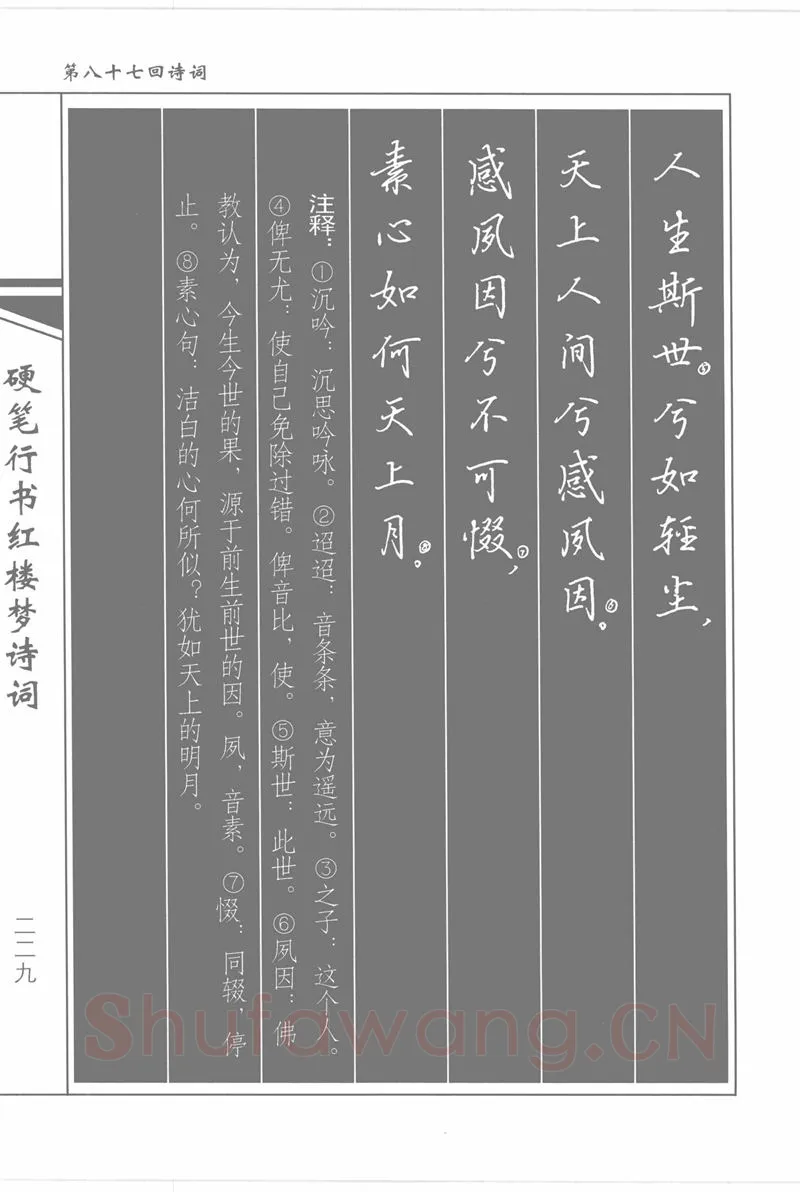 第八十七回诗词
人生斯世⑤兮如轻尘，
天上人间兮感夙因⑥。
感夙因兮不可惙⑦，
素心如何天上月⑧。
注释：①沉吟：沉思吟咏。②迢迢：音条条，意为遥远。③之子：这个人。
④俾无尤：使自己免除过错。俾音比，使。⑤斯世：此世。⑥夙因：佛
教认为，今生今世的果，源于前生前世的因。夙，音素。⑦惙：同辍，停
止。⑧素心句：洁白的心何所似？犹如天上的明月。
硬笔行书红楼梦诗词
二二九
Shufawang.CN